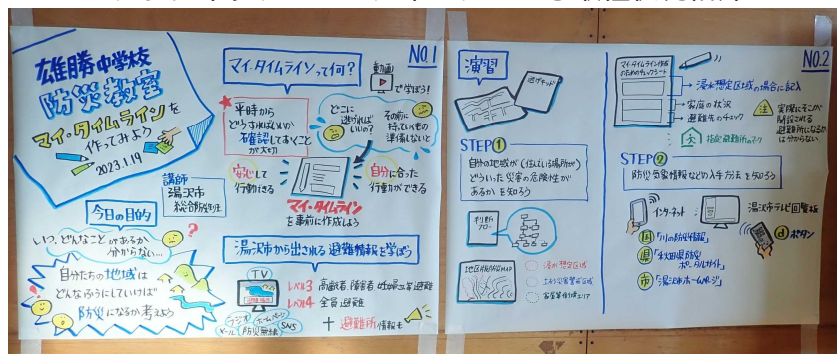 雄勝中学校
防災教室
マイ・タイムラインを
作ってみよう
2023.1.19
講師
湯沢市
今日の目的
いつ、どんなことがあるか
分からない…
自分たちの地域は
どんなふうにしていけば
防災になるか考えよう
NO.1
マイ・タイムラインって何?
動画
で学ぼう!
平時から
どうすればいいか
確認しておくこと
が大切
どこに
逃げれば
いいの?
その前に
持っていくもの
準備しないと
安心して
行動できる
自分に合った
行動ができる
マイ・タイムライン
を事前に作成しよう
湯沢市から出される避難情報を学ぼう
TV
ラジオ
ホームページ
メール
防災無線
SNS
レベル3 高齢者、障害者、妊婦さん等避難
レベル4 全員避難
+ 避難所情報も
NO.2
演習
逃げキッド
STEP①
自分の地域が(住んでいる場所が)
どういった災害の危険性が
あるか を知ろう
判断
フロー
浸水想定区域
土砂災害警戒区域
マイ・タイムライン作成
のためのチェックシート
浸水想定区域の場合に記入
家庭の状況
避難先のチェック
注
実際にそこが
開設される
避難所になるか
は分からない
指定避難所のマーク
STEP②
防災気象情報などの入手方法を知ろう
インターネット
湯沢市テレビ回覧板
国「川の防災情報」
県「秋田県防災
ポータルサイト」
市「湯沢市ホームページ」
dボタン